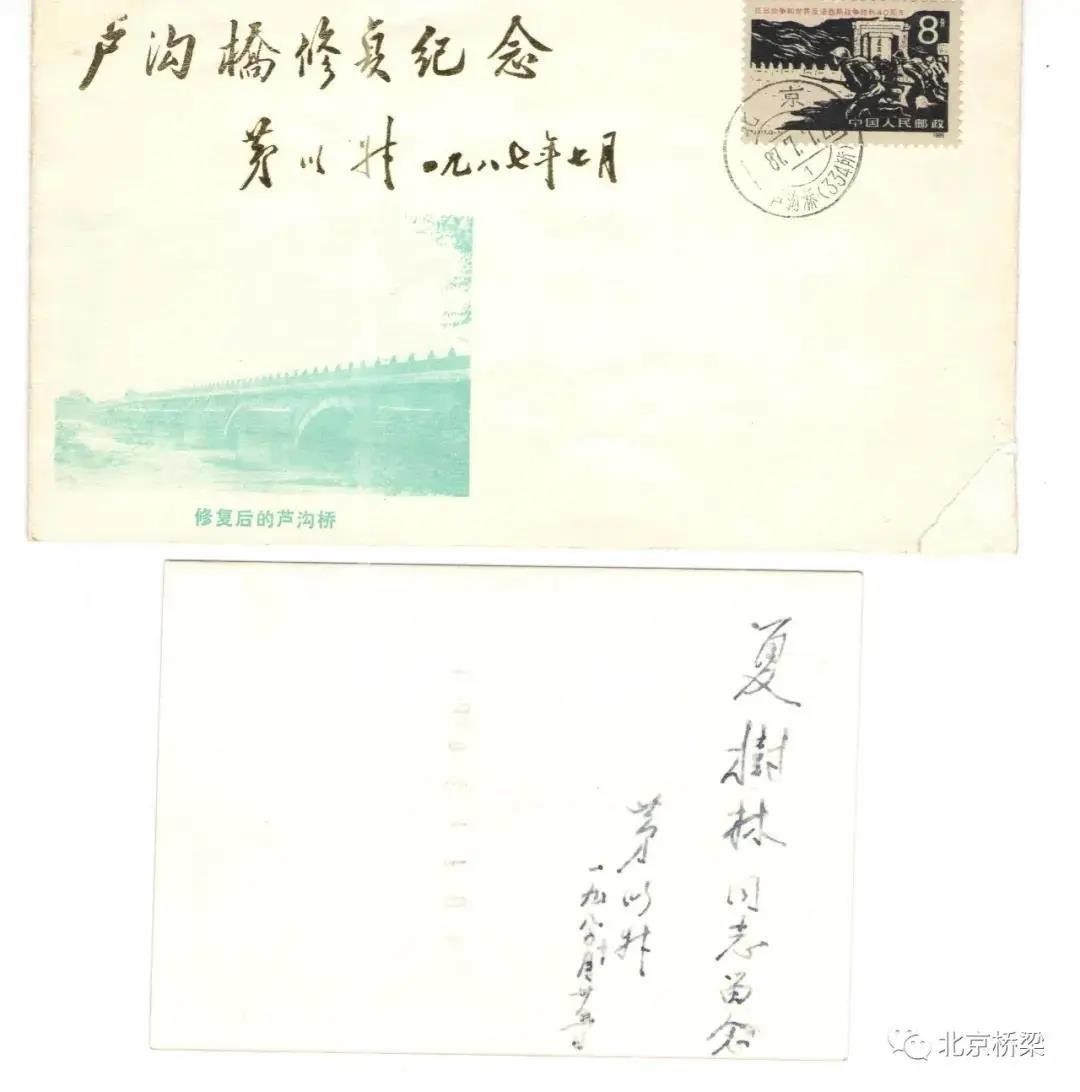 卢沟橋修复纪念
茅以升 一九八七年七月
抗日战争和世界反法西斯战争胜利40周年
8分
中国人民邮政
北京
87.7.7
1
卢沟桥(334所)
修复后的芦沟桥
夏樹林同志留念
茅以升
北京桥梁